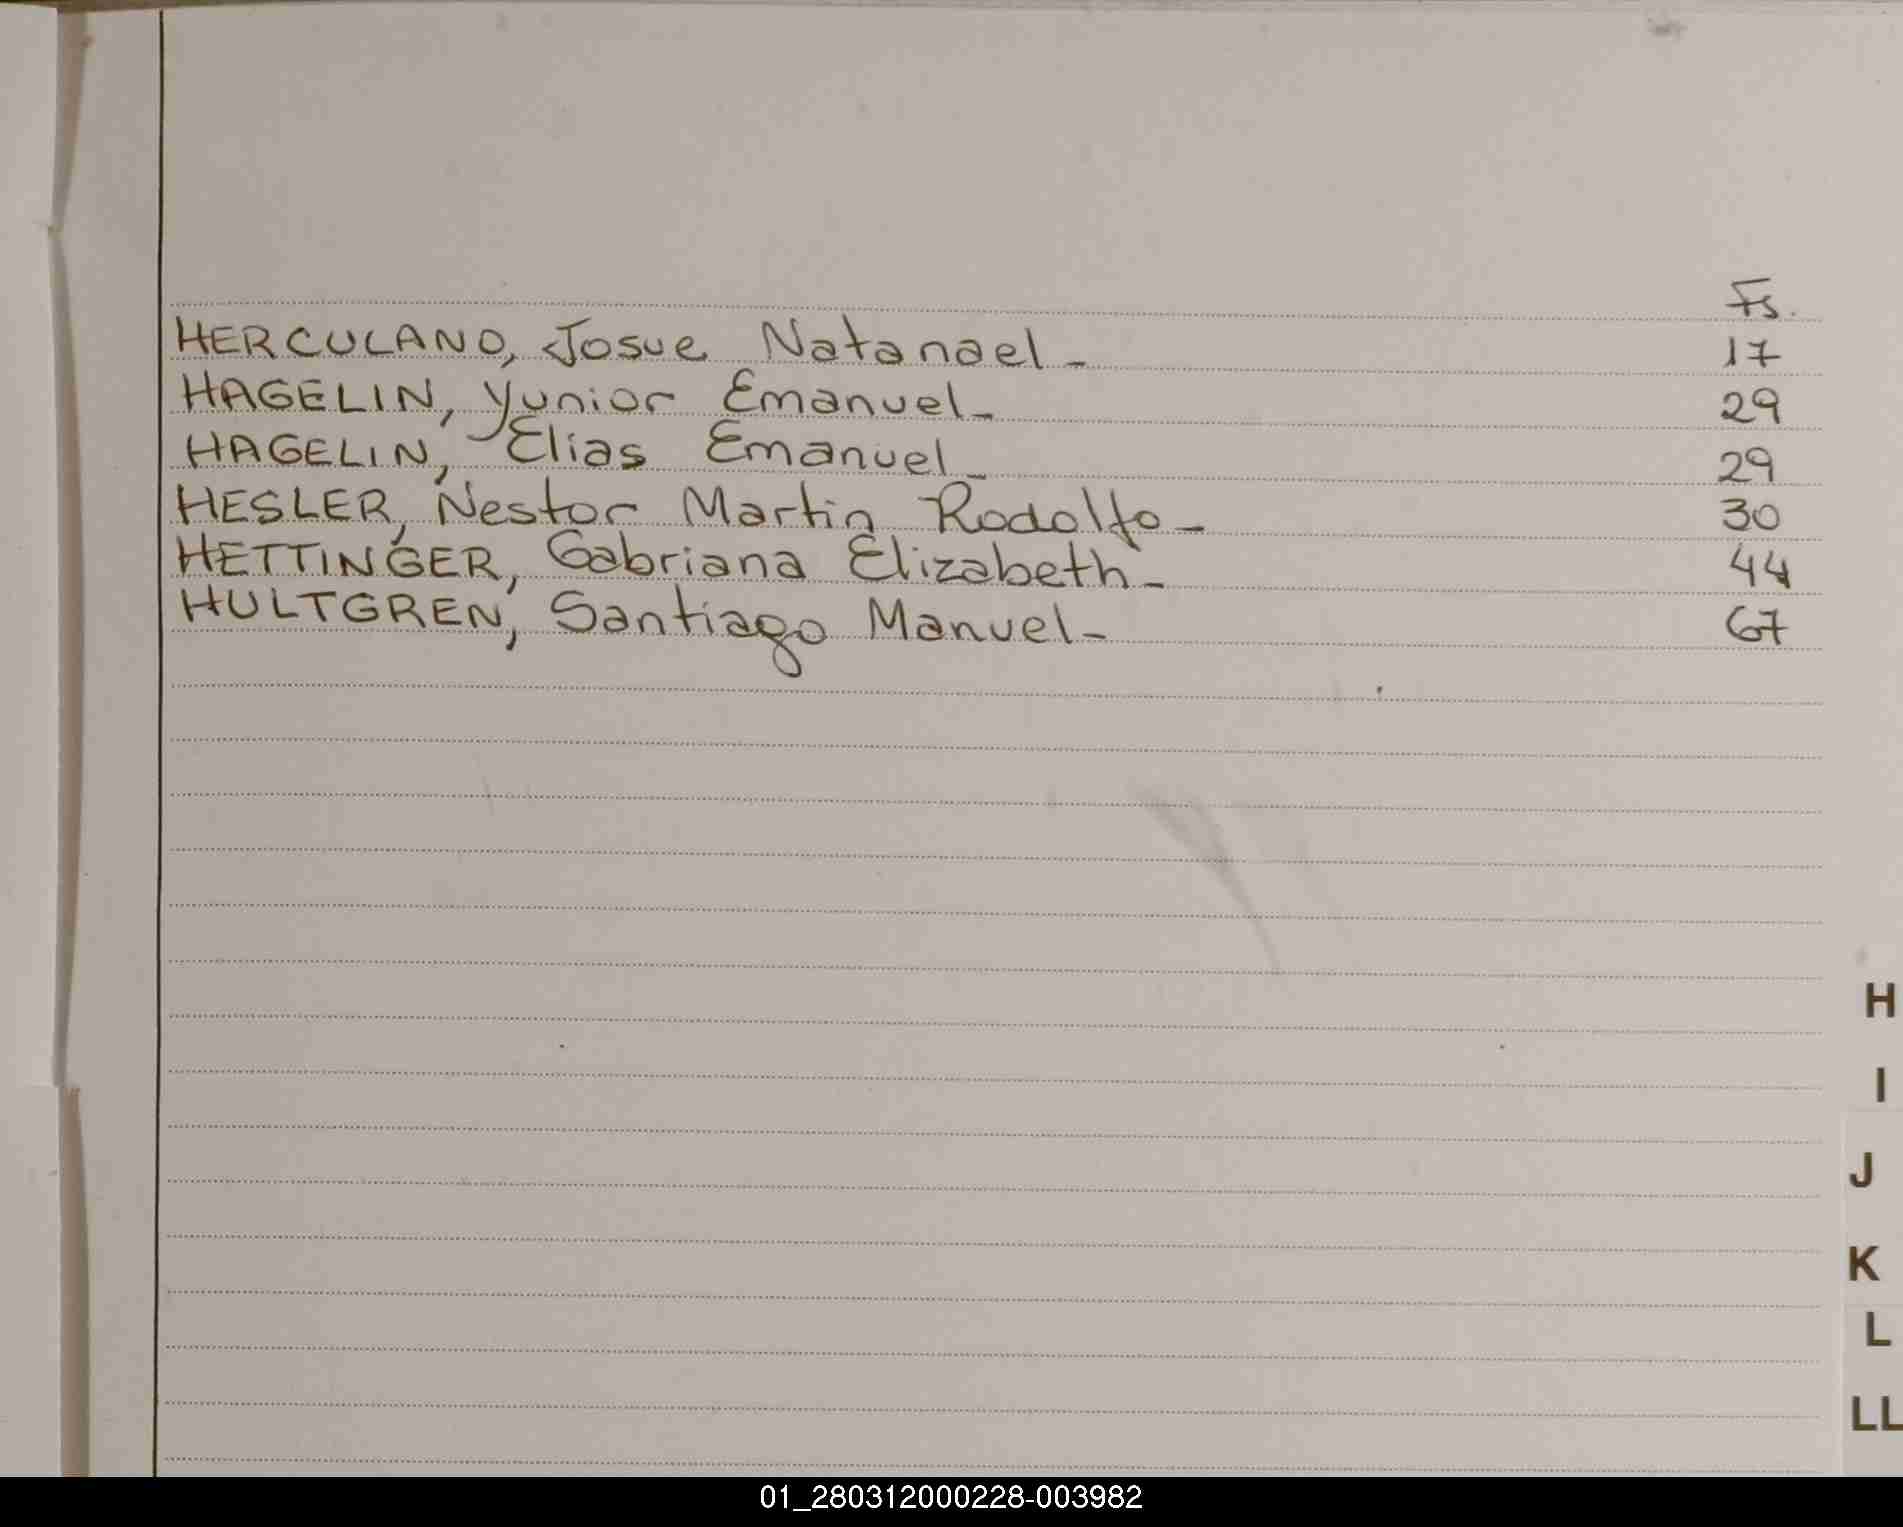 Fs.
HERCULANO, Josue Natanael - 17
HAGELIN, Yunior Emanuel - 29
HAGELIN, Elias Emanuel - 29
HESLER, Nestor Martin Rodolfo - 30
HETTINGER, Gabriana Elizabeth - 44
HULTGREN, Santiago Manuel - 67
H
I
J
K
L
LL
01_280312000228-003982